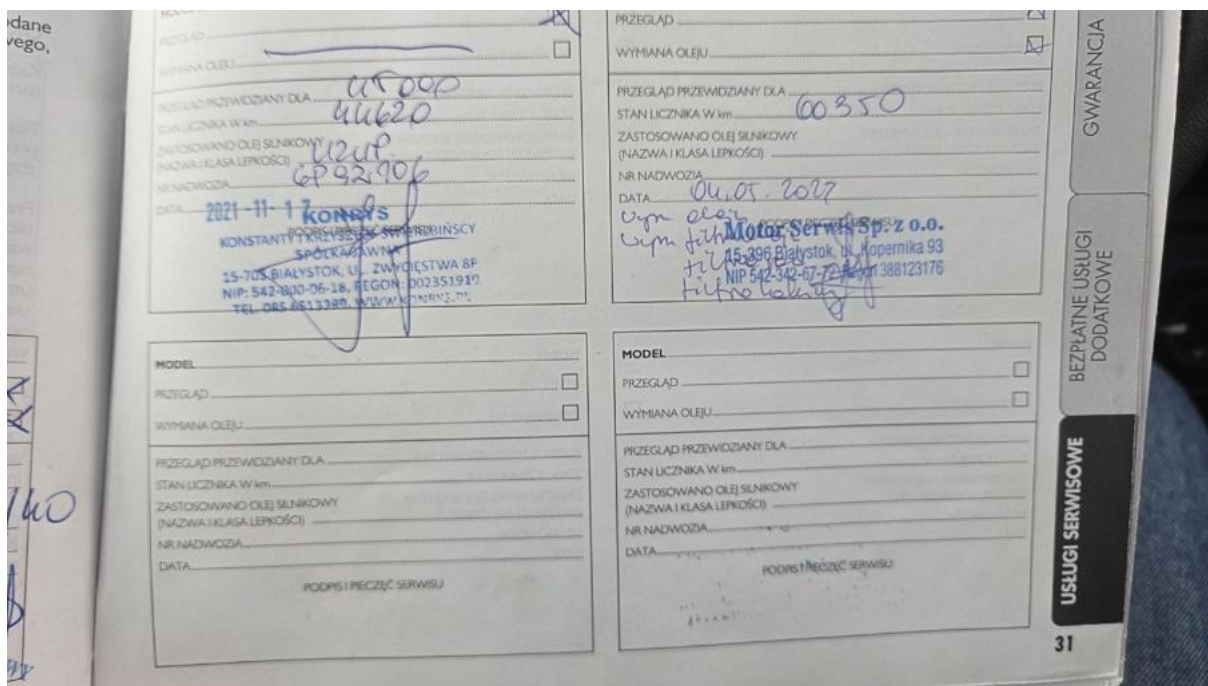 odane
vego,
PRZEGLĄD
WYMIANA OLEJU
PRZEGLĄD PRZEWIDZIANY DLA
STAN LICZNIKA W km 44620
ZASTOSOWANO OLEJ SILNIKOWY
(NAZWA I KLASA LEPKOŚCI) UZUP.
NR NADWOZIA 6P92106
DATA 2021-11-17
KONRYS
PODPIS I PIECZĘĆ SERWISU
KONSTANTY I KRZYSZTOF ŚWIDERBIŃSCY
SPÓŁKA JAWNA
15-703 BIAŁYSTOK, UL. ZWYCIĘSTWA 8F
NIP: 542-800-06-18, REGON: 002351919
TEL. 085 6513389, WWW.KONRYS.PL
PRZEGLĄD
WYMIANA OLEJU
PRZEGLĄD PRZEWIDZIANY DLA
STAN LICZNIKA W km 60350
ZASTOSOWANO OLEJ SILNIKOWY
(NAZWA I KLASA LEPKOŚCI)
NR NADWOZIA
DATA 04.05.2022
wym oleju
PODPIS I PIECZĘĆ SERWISU
wym filtr
Motor Serwis Sp. z o.o.
15-396 Białystok, ul. Kopernika 93
NIP 542-342-67-72 Regon 388123176
filtr kabiny
MODEL
PRZEGLĄD
WYMIANA OLEJU
PRZEGLĄD PRZEWIDZIANY DLA
STAN LICZNIKA W km
ZASTOSOWANO OLEJ SILNIKOWY
(NAZWA I KLASA LEPKOŚCI)
NR NADWOZIA
DATA
PODPIS I PIECZĘĆ SERWISU
MODEL
PRZEGLĄD
WYMIANA OLEJU
PRZEGLĄD PRZEWIDZIANY DLA
STAN LICZNIKA W km
ZASTOSOWANO OLEJ SILNIKOWY
(NAZWA I KLASA LEPKOŚCI)
NR NADWOZIA
DATA
PODPIS I PIECZĘĆ SERWISU
GWARANCJA
BEZPŁATNE USŁUGI
DODATKOWE
USŁUGI SERWISOWE
31